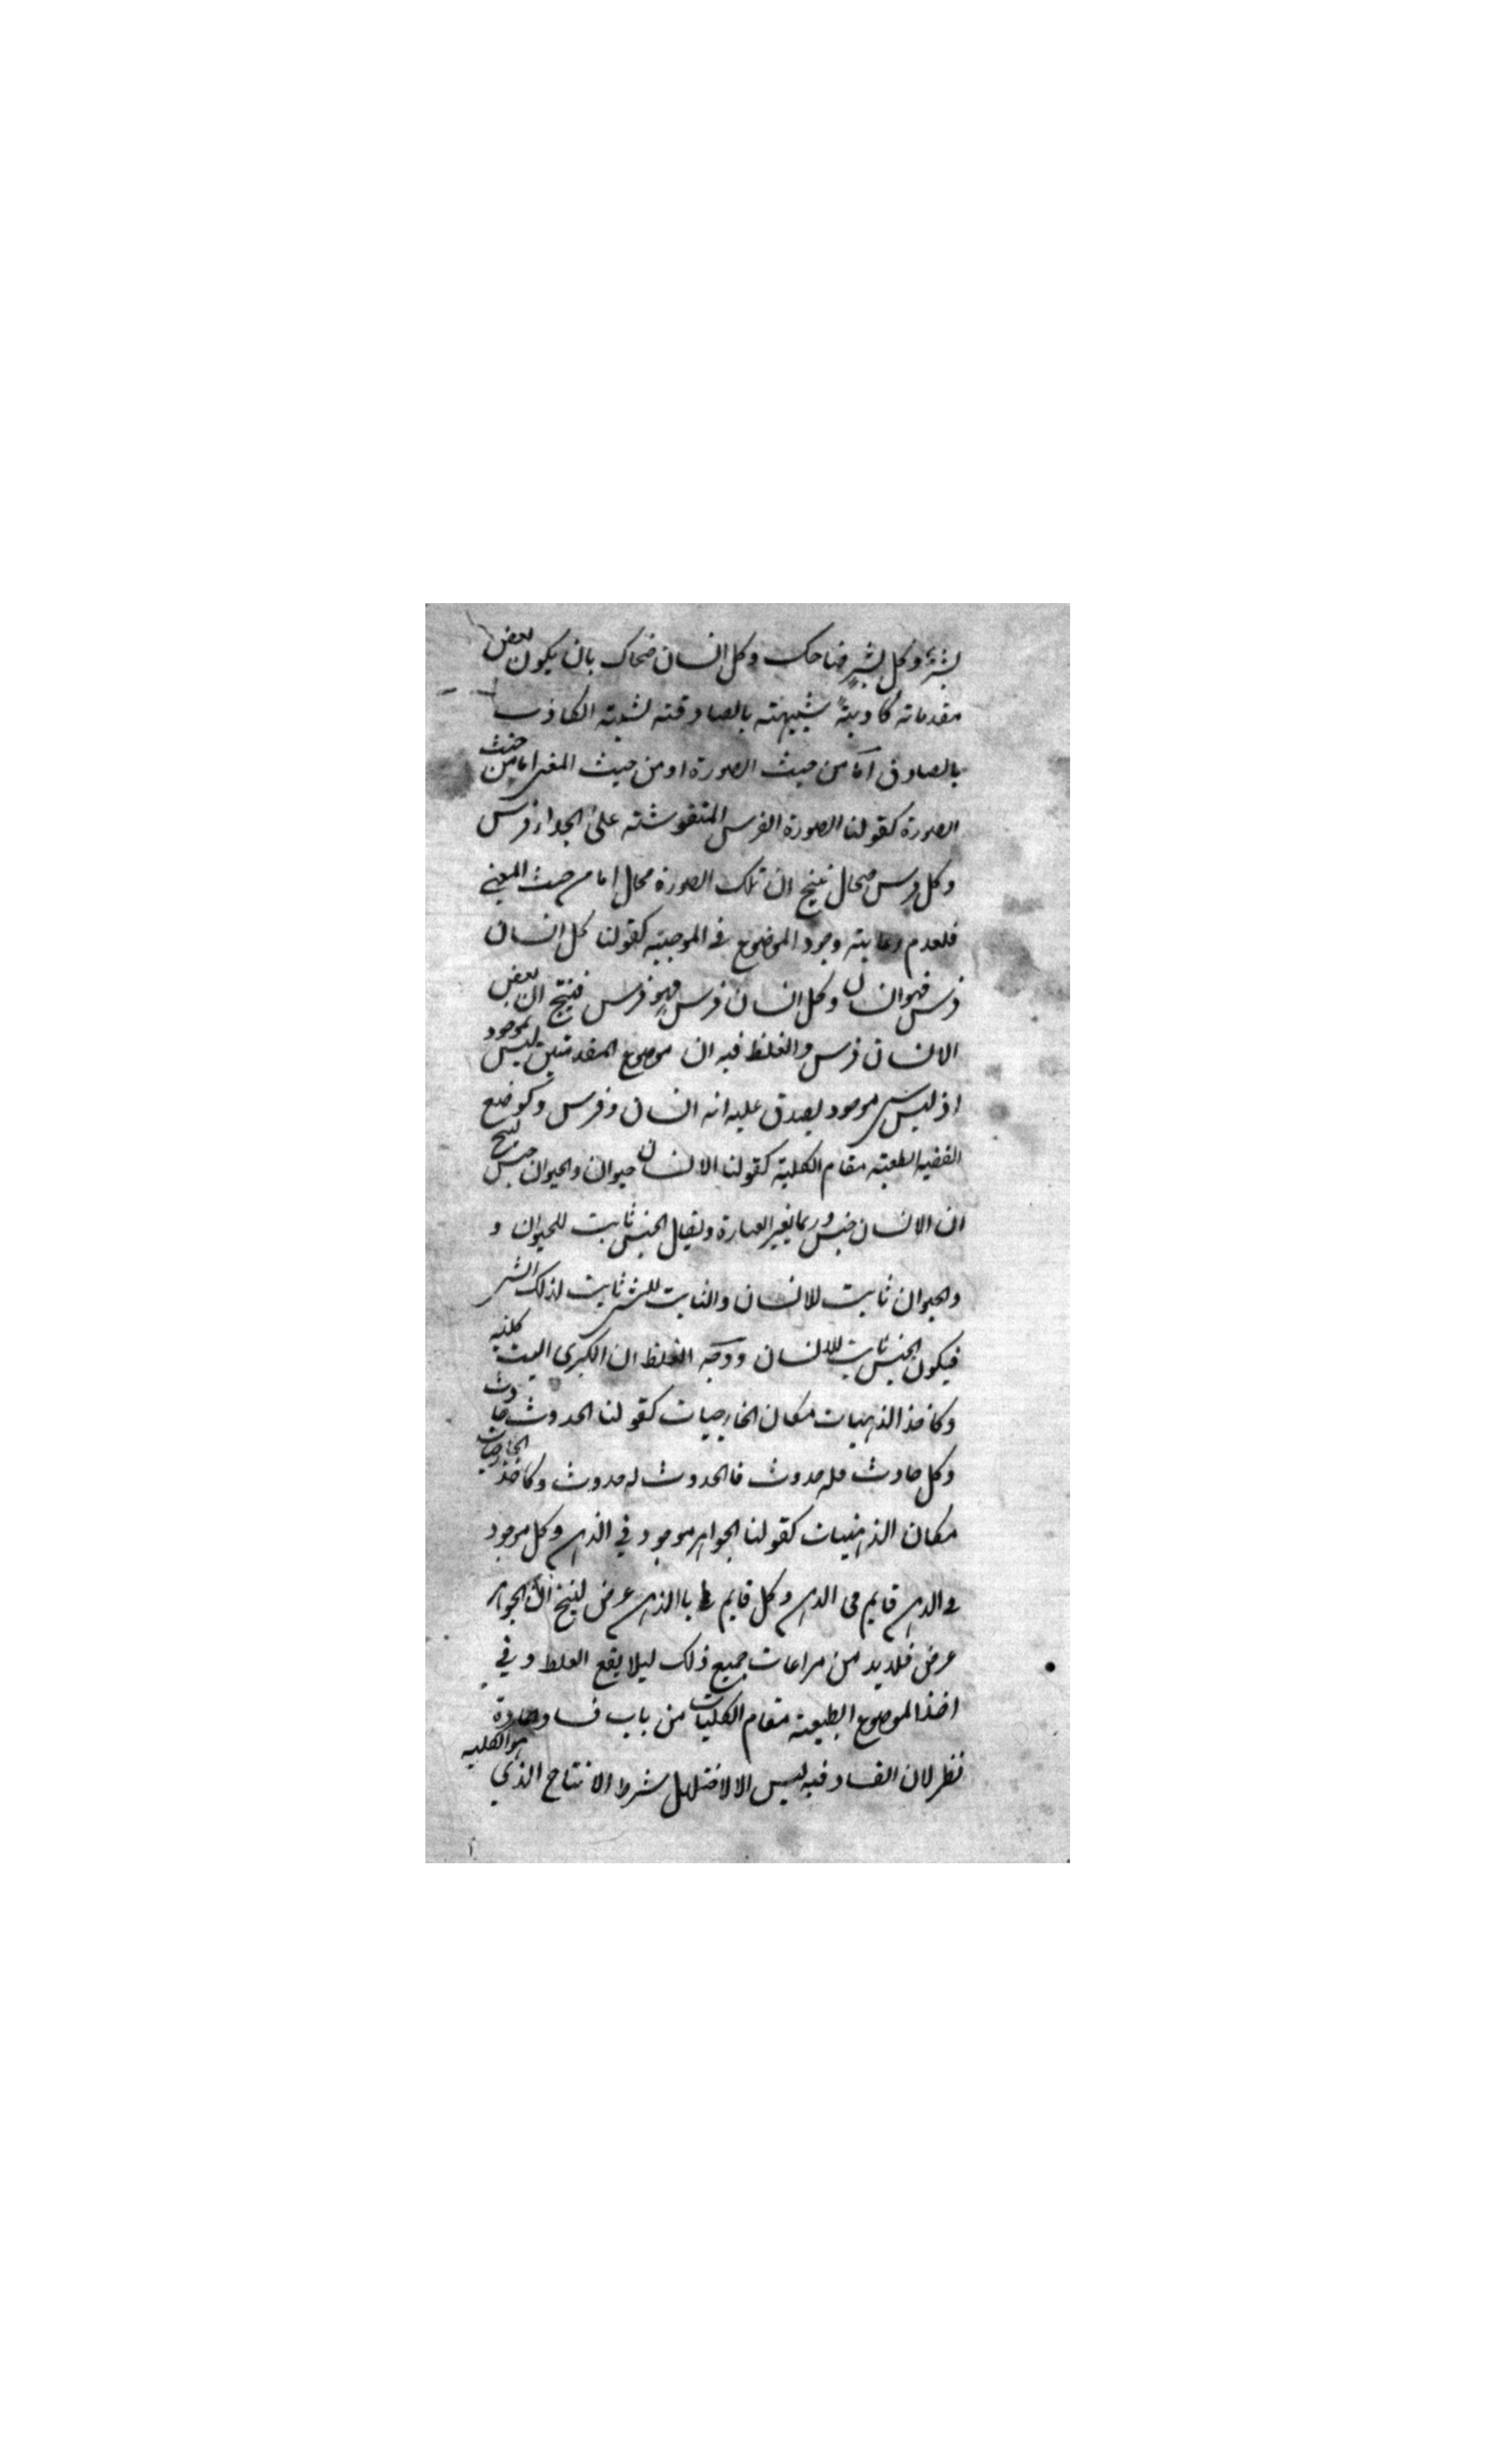 بشر وكل بشر ضاحك وكل انسان ضحاك بان يكون بعض
مقدماته كاذبة شبيهته بالصادقته لشبته الكاذب
بالصادق اما من حيث الصورة او من حيث المعنى اما من حيث
الصورة كقولنا الصورة الفرس المنقوشته على الجدار فرس
وكل فرس صحال ينتج ان تلك الصورة صحال اما من حيث المعنى
فلعدم رعايته وجود الموضوع فى الموجبته كقولنا كل انسان
فرس فهو انسان وكل انسان فرس فهو فرس فينتج ان بعض
الانسان فرس والغلط فيه ان موضوع المقدمتين ليس بموجود
اذ ليس شى موجود يصدق عليه انه انسان وفرس وكوضع
القضيه الطبعيته مقام الكليته كقولنا الانسان حيوان والحيوان جنس ينتج
ان الانسان جنس وربما يغير العبارة ويقال الجنس ثابت للحيوان و
والحيوان ثابت للانسان والثابت للشى ثابت لذلك الشى
فيكون الجنس ثابت للانسان ووجه الغلط ان الكبرى ليست كليه
وكاخذ الذهنيات مكان الخارجيات كقولنا الحدوث حادث
وكل حادث فله حدوث فالحدوث له حدوث وكاخذ الخارجيات
مكان الذهنيات كقولنا الجواهر موجود في الذهن وكل موجود
فى الذهن قايم فى الذهن وكل قايم باالذهن عرض لينتج ان الجواهر
عرض فلابد من مراعات جميع ذلك ليلا يقع الغلط وفي
اخذ الموضوع الطبيعته مقام الكليات من باب فساد المادة
نظر لان الفساد فيه ليس الا لاختلال شرط الانتاج الذي هو الكليه